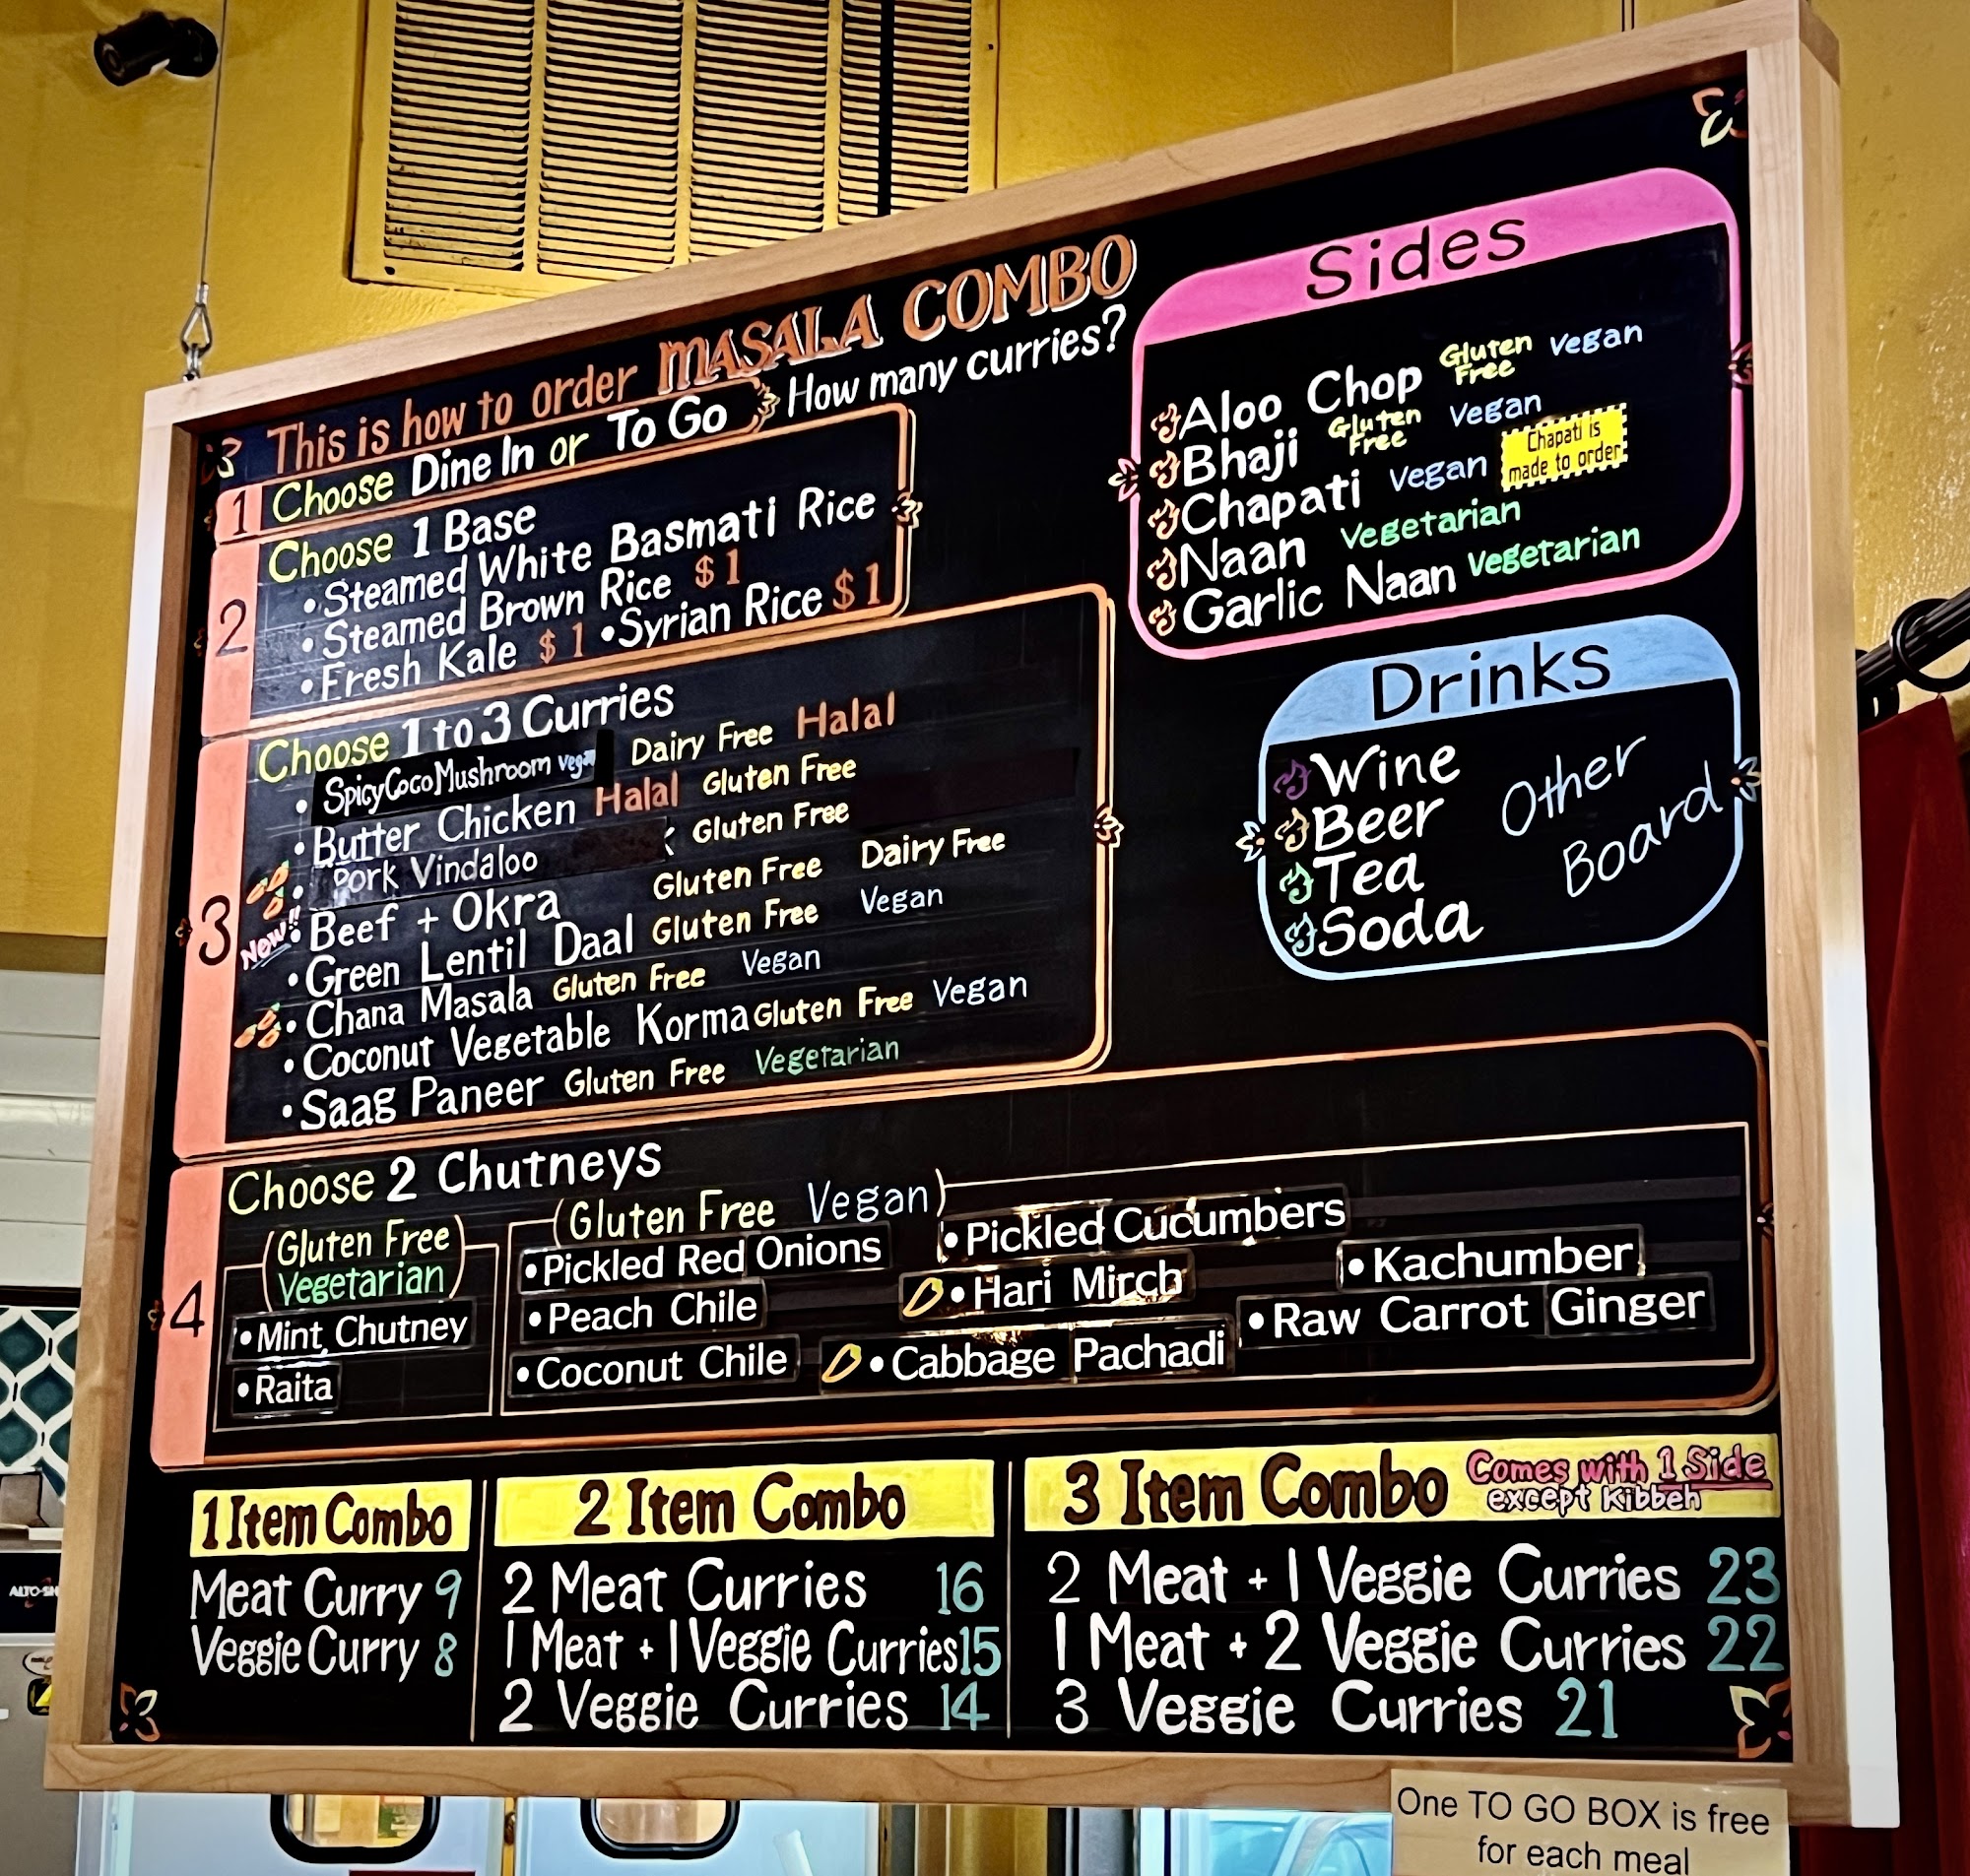 This is how to order MASALA COMBO
1 Choose Dine In or To Go How many curries?
2 Choose 1 Base
•Steamed White Basmati Rice
•Steamed Brown Rice $1
•Fresh Kale $1 •Syrian Rice $1
3 Choose 1 to 3 Curries
•SpicyCocoMushroom Vegan Dairy Free Halal
•Butter Chicken Halal Gluten Free
•Pork Vindaloo Gluten Free
New!! •Beef + Okra Gluten Free Dairy Free
•Green Lentil Daal Gluten Free Vegan
•Chana Masala Gluten Free Vegan
•Coconut Vegetable Korma Gluten Free Vegan
•Saag Paneer Gluten Free Vegetarian
4 Choose 2 Chutneys
(Gluten Free
Vegetarian)
•Mint Chutney
•Raita
(Gluten Free Vegan)
•Pickled Red Onions
•Peach Chile
•Coconut Chile
•Pickled Cucumbers
•Hari Mirch
•Cabbage Pachadi
•Kachumber
•Raw Carrot Ginger
Sides
Aloo Chop Gluten Free Vegan
Bhaji Gluten Free Vegan
Chapati Vegan
Chapati is
made to order!
Naan Vegetarian
Garlic Naan Vegetarian
Drinks
Wine
Beer
Tea
Soda
Other
Board
1 Item Combo
Meat Curry 9
Veggie Curry 8
2 Item Combo
2 Meat Curries 16
1 Meat + 1 Veggie Curries 15
2 Veggie Curries 14
3 Item Combo
Comes with 1 Side
except Kibbeh
2 Meat + 1 Veggie Curries 23
1 Meat + 2 Veggie Curries 22
3 Veggie Curries 21
One TO GO BOX is free
for each meal